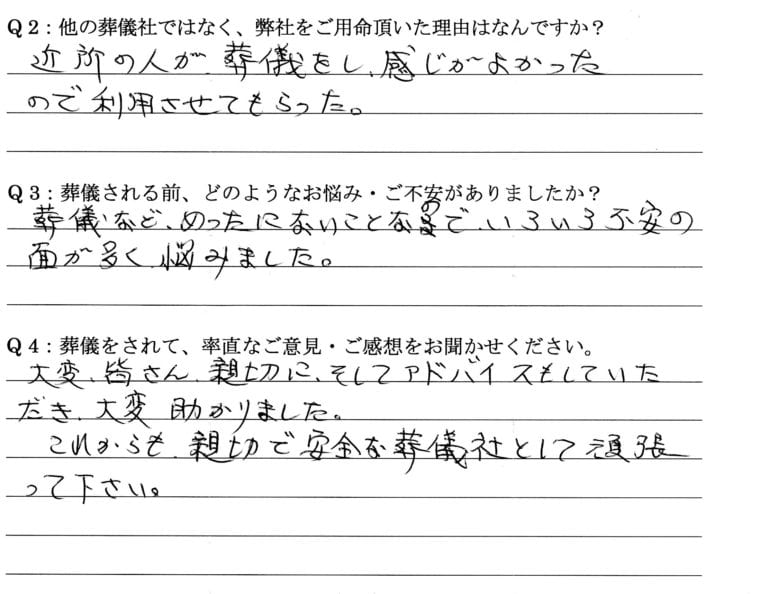 Q2：他の葬儀社ではなく、弊社をご用命頂いた理由はなんですか？
近所の人が、葬儀をし、感じがよかった
ので利用させてもらった。
Q3：葬儀される前、どのようなお悩み・ご不安がありましたか？
葬儀など、めったにないことなので、いろいろ不安の
面が多く、悩みました。
Q4：葬儀をされて、率直なご意見・ご感想をお聞かせください。
大変、皆さん、親切に、そしてアドバイスもしていた
だき、大変助かりました。
これからも、親切で安全な葬儀社として頑張
って下さい。